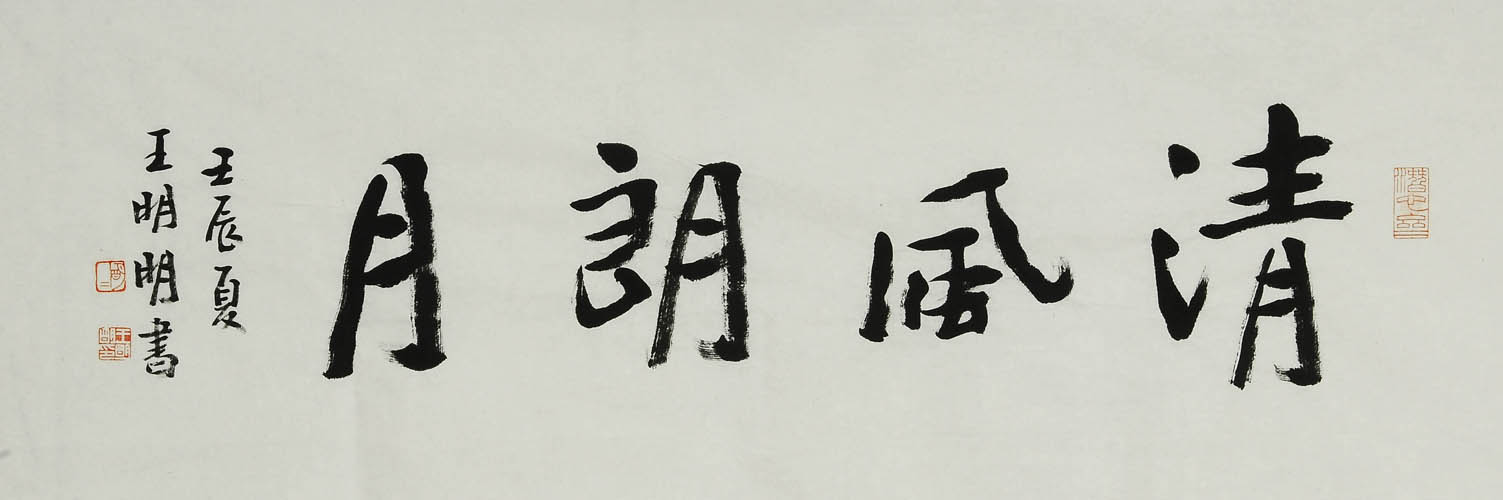 清風朗月
壬辰夏
王明明書